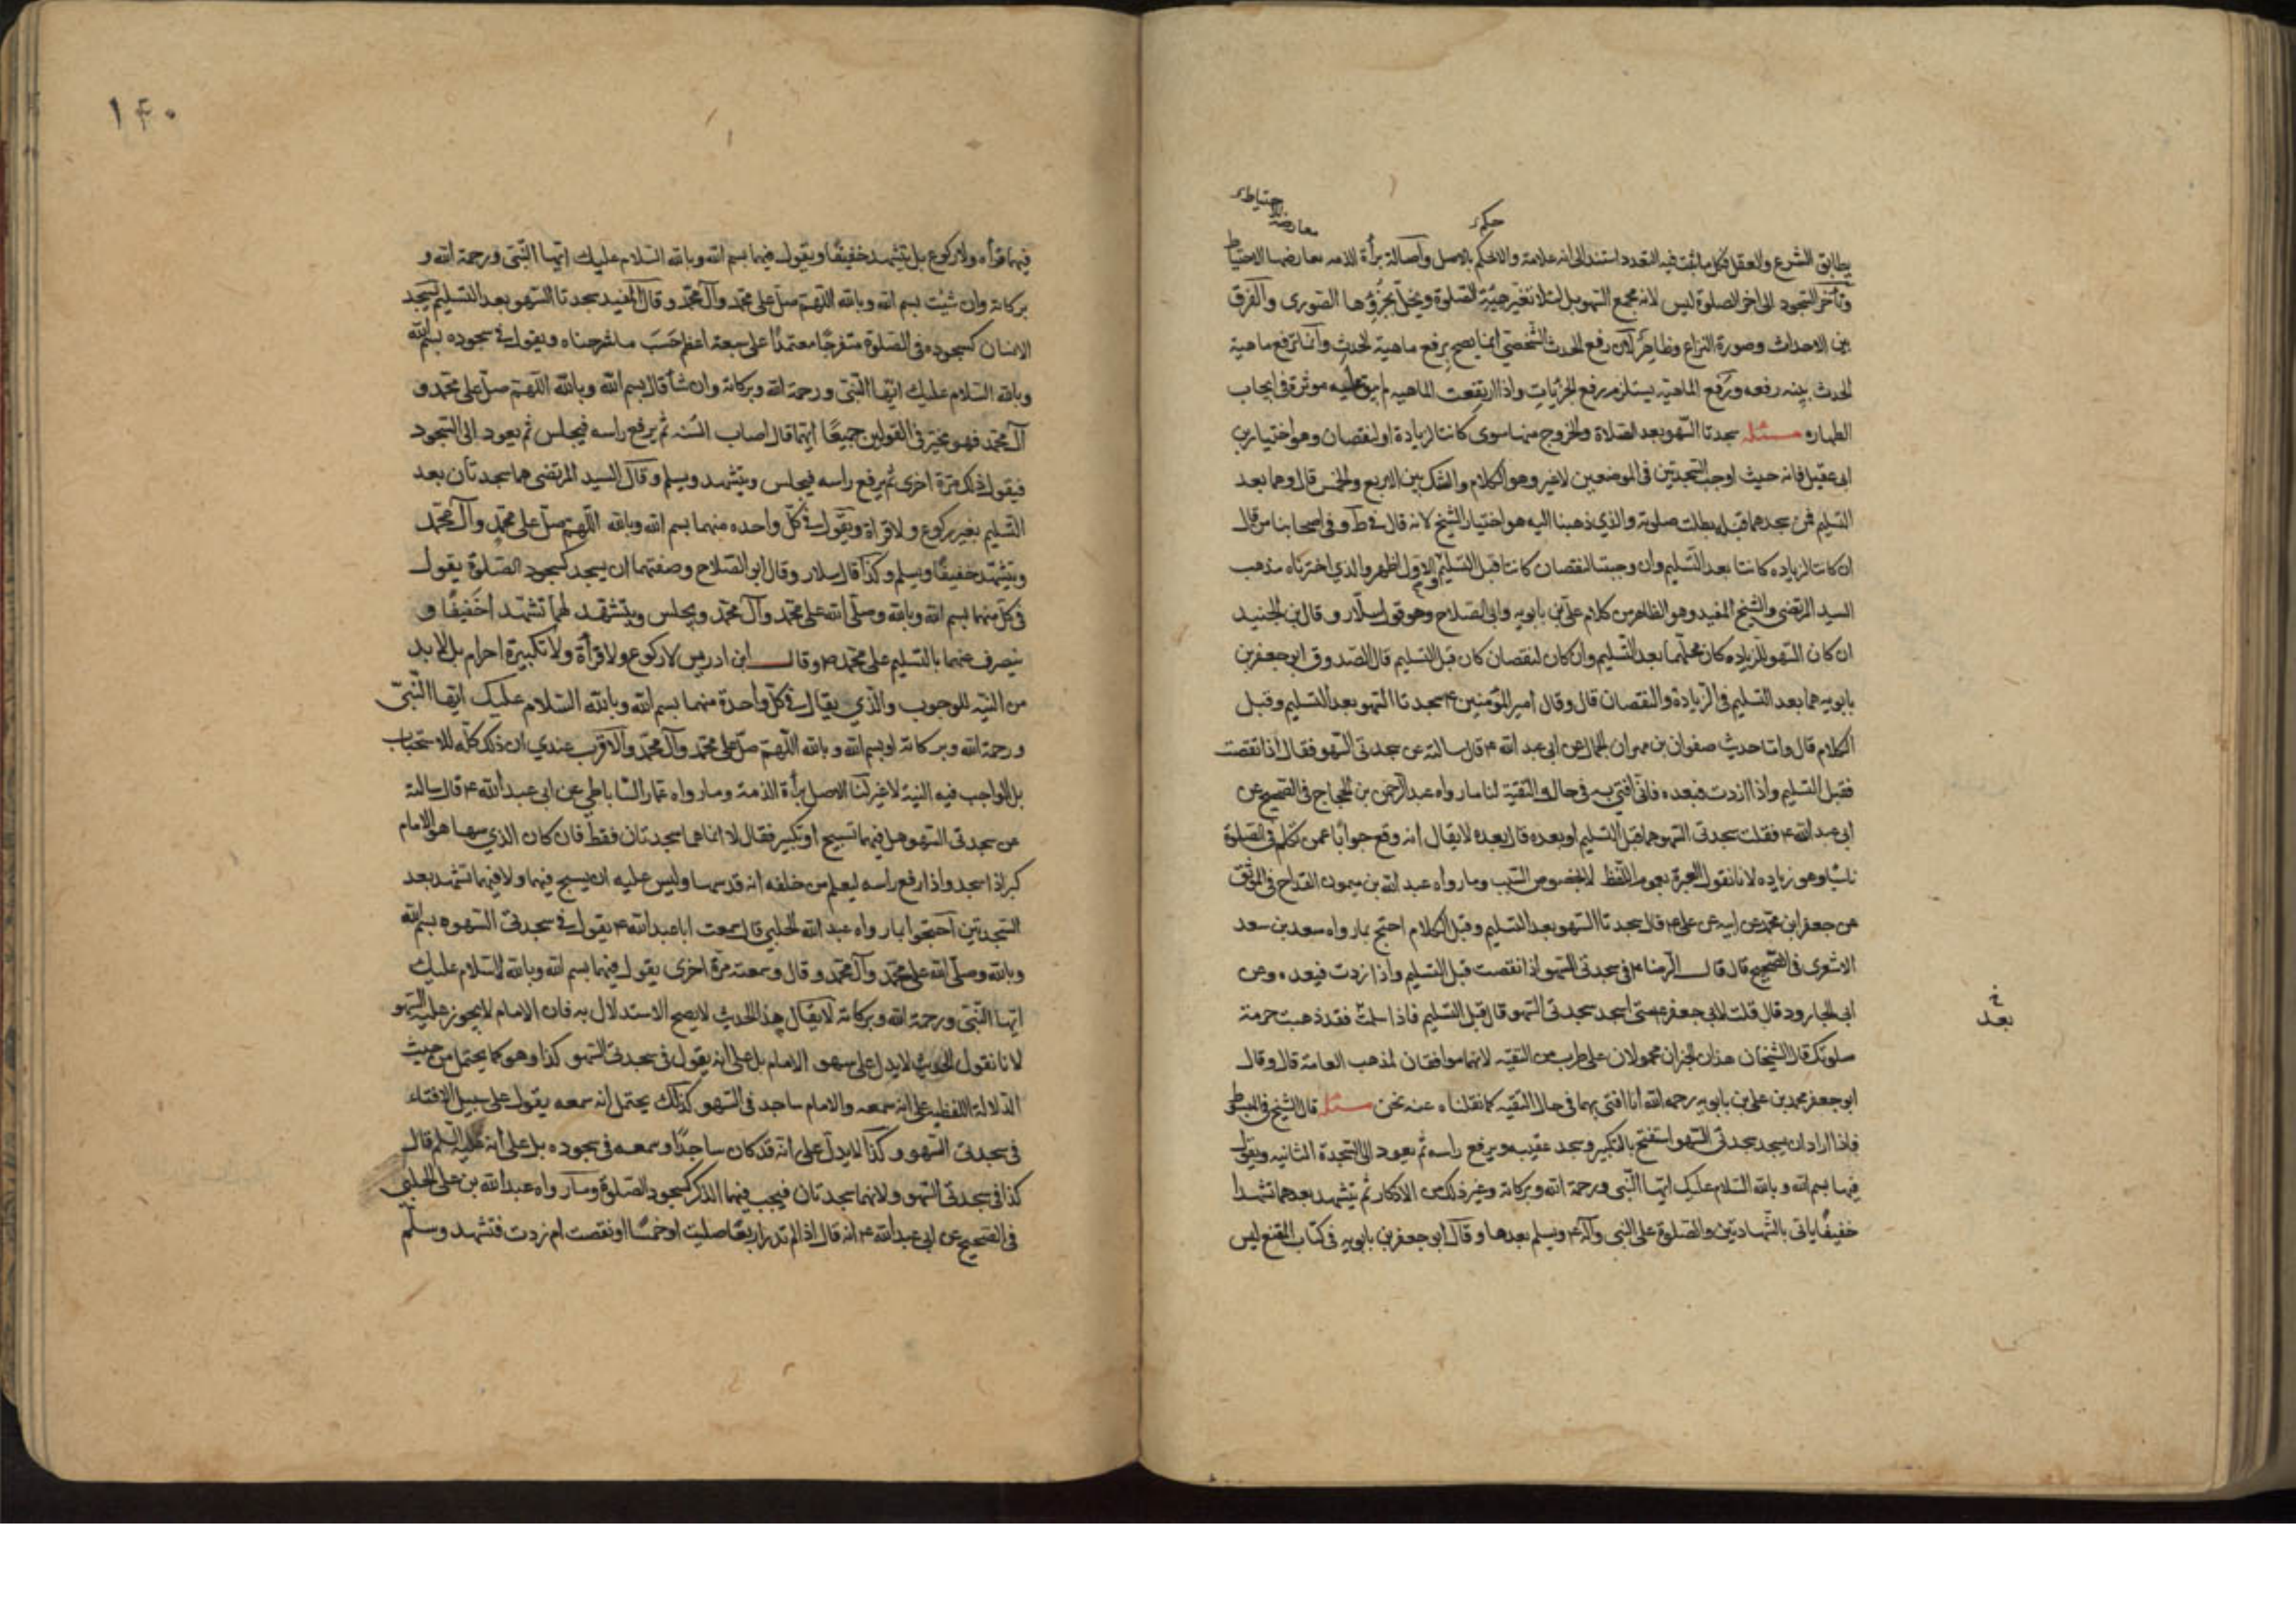 احتياط
معارضة
حكم
يطابق الشرع والعقل فكل ما ثبت فيه التعدد استند الى انه علامة والا لحكم بالاصل وأصالة برأة الذمه معارضها الاحتياط
وتأخر السجود الى اخر الصلوة ليس لانه مجمع السهو بل لئلا تغير هيئة الصلوة ويختل بجزؤها الصورى والفرق
بين الاحداث وصورة النزاع وظاهر لان رفع الحدث الشخصي انما يصح برفع ماهية الحدث وانما ترفع ماهية
الحدث بنيه رفعه ورفع الماهية يستلزم رفع الجزئيات واذا ارتفعت الماهيه لم يبق علية موثرة في ايجاب
الطهاره مسئله سجدتا السهو بعد الصلاة والخروج منها سوى كانتا لزيادة او لنقصان وهو اختيار بن
ابى عقيل فانه حيث اوجب السجدتين في الموضعين لا غير وهو الكلام والشك بين الاربع والخمس قال وهما بعد
التسليم فمن سجدهما قبله بطلت صلوته والذي ذهبنا اليه هو اختيار الشيخ لانه قال في ط و في اصحابنا من قال
ان كانتا لزياده كانتا بعد التسليم وان وجبتا لنقصان كانتا قبل التسليم والاول اظهر والذي اخترناه مذهب
السيد المرتضى والشيخ المفيد وهو الظاهر من كلام على بن بابويه وابى الصلاح وهو قول سلّار و قال بن الجنيد
ان كان السهو للزياده كان محلهما بعد التسليم وان كان لنقصان كان قبل التسليم قال الصدوق ابو جعفر بن
بابويه هما بعد التسليم في الزيادة والنقصان قال وقال امير المؤمنين ع سجدتا السهو بعد التسليم وقبل
الكلام قال واما حديث صفوان بن مهران الجمال عن ابى عبد الله ع قال سالته عن سجدتى السهو فقال اذا نقصت
فقبل التسليم واذا ازدت فبعده فانى افتى به في حال التقية لنا ما رواه عبد الرحمن بن الحجاج في الصحيح عن
ابى عبد الله ع فقلت سجدتى السهو هما قبل التسليم او بعده قال بعده لا يقال انه وقع جوابا عمن تكلم في الصلوة
ناسيًا وهو زياده لانا نقول العبرة بعموم اللفظ لا بخصوص السبب وما رواه عبد الله بن ميمون القداح في الموثق
عن جعفر ابن محمد عن ابيه عن على ع قال سجدتا السهو بعد التسليم وقبل الكلام احتج بما رواه سعد بن سعد
الاشعرى في الصحيح قال قال الرضا ع في سجدتى السهو اذا نقصت قبل التسليم واذا زدت فبعده وعن
ابى الجارود قال قلت لابى جعفر ع متى اسجد سجدتى السهو قال قبل التسليم فاذا سلمت فقد ذهبت حرمة
خ
بعد
صلوتك قال الشيخان هذان الخبران محمولان على ضرب من التقيه لانهما موافقان لمذهب العامة قال وقال
ابو جعفر محمد بن على بن بابويه رحمه الله انا افتى بهما في حال التقيه كما نقلناه عنه نحن مسئله قال الشيخ في المبسوط
فاذا اراد ان يسجد سجدتى السهو استفتح بالتكبير وسجد عقيبه ويرفع راسه ثم يعود الى السجدة الثانيه ويقول
فيهما بسم الله و بالله السلام عليك ايها النبى ورحمة الله وبركاته وغير ذلك من الاذكار ثم يتشهد بعدهما تشهدا
خفيفًا ياتى بالشهادتين والصلوة على النبى وآله ع ويسلم بعدها وقال ابو جعفر بن بابويه في كتاب المقنع ليس
١٤٠
فيهما قرأه ولا ركوع بل يتشهد خفيفًا ويقول فيهما بسم الله وبالله السلام عليك ايها النّبى ورحمة الله و
بركاته وان شئت بسم الله وبالله اللهم صل على محمّد وآل محمّد و قال المفيد سجدتا السهو بعد التسليم يسجد
الانسان كسجوده في الصلوة متفرجًا معتمدًا على سبعة اعظم حَسَب ما شرحناه ويقول في سجوده بسم الله
وبالله السلام عليك ايّها النّبى ورحمة الله وبركاته وان شأ قال بسم الله وبالله اللّهم صل على محمّد و
آل محمّد فهو مخيّر في القولين جميعًا ايّهما قال اصاب السُنه ثم يرفع راسه فيجلس ثم يعود الى السجود
فيقول ذلك مرّة اخرى ثم يرفع راسه فيجلس ويتشهد ويسلم وقال السيد المرتضى هما سجدتان بعد
التسليم بغير ركوع ولا قراة ويقول في كلّ واحده منهما بسم الله وبالله اللّهم صل على محمّد وآل محمّد
ويتشهّد خفيفًا ويسلم وكذا قال سلار وقال ابو الصلاح وصفتهما ان يسجد كسجود الصلوة يقول
في كل منهما بسم الله وبالله وصلى الله على محمّد وآل محمّد ويجلس ويتشهد لهما تشهّدا خَفيفًا و
ينصرف عنهما بالتسليم على محمّد ص وقال ابن ادريس لا ركوع ولا قرأة ولا تكبيرة احرام بل لا بد
من النيّه للوجوب والّذي يقال في كلّ واحدة منهما بسم الله وبالله السّلام عليك ايّها النّبىّ
ورحمة الله وبركاته او بسم الله وبالله اللّهم صلّ على محمّد وآل محمّد والاقرب عندي ان ذلك كلّه للاستحباب
بل الواجب فيه النية لا غير لنا الاصل برأة الذمة وما رواه عمّار السّاباطي عن ابى عبد الله ع قال سالته
عن سجدتى السهو هل فيهما تسبيح او تكبير فقال لا انما هما سجدتان فقط فان كان الذي سها هو الامام
كبر اذا سجد واذا رفع راسه ليعلم من خلفه انه قد سها وليس عليه ان يسبح فيهما ولا فيهما تشهد بعد
السّجدتين احتجوا بما رواه عبد الله الحلبي قال سمعت ابا عبد الله ع يقول في سجدتى السّهو بسم الله
وبالله وصلّى الله على محمّد وآل محمّد و قال وسمعته مرّة اخرى يقول فيهما بسم الله وبالله السّلام عليك
ايّها النّبى ورحمة الله وبركاته لا يقال هذا الحديث لا يصح الاستدلال به فان الامام لا يجوز عليه السّهو
لانا نقول الحديث لا يدل على سهو الامام بل على انه يقول في سجدتى السّهو كذا وهو كما يحتمل من حيث
الدّلالة اللفظيه على انه سمعه والامام ساجد في السّهو كذلك يحتمل انه سمعه يقول على سبيل الافتاء
في سجدتى السّهو و كذا لا يدلّ على انّه قد كان ساجدًا وسمعه في سجوده بل على انه عليه السلم قال
كذا في سجدتى السّهو ولانهما سجدتان فيجب فيهما الذكر كسجود الصّلوة وما رواه عبد الله بن على الحلبي
في الصّحيح عن ابى عبد الله ع انه قال اذا لم تدر اربعًا صليت او خمسًا او نقصت ام زدت فتشهد وسلّم